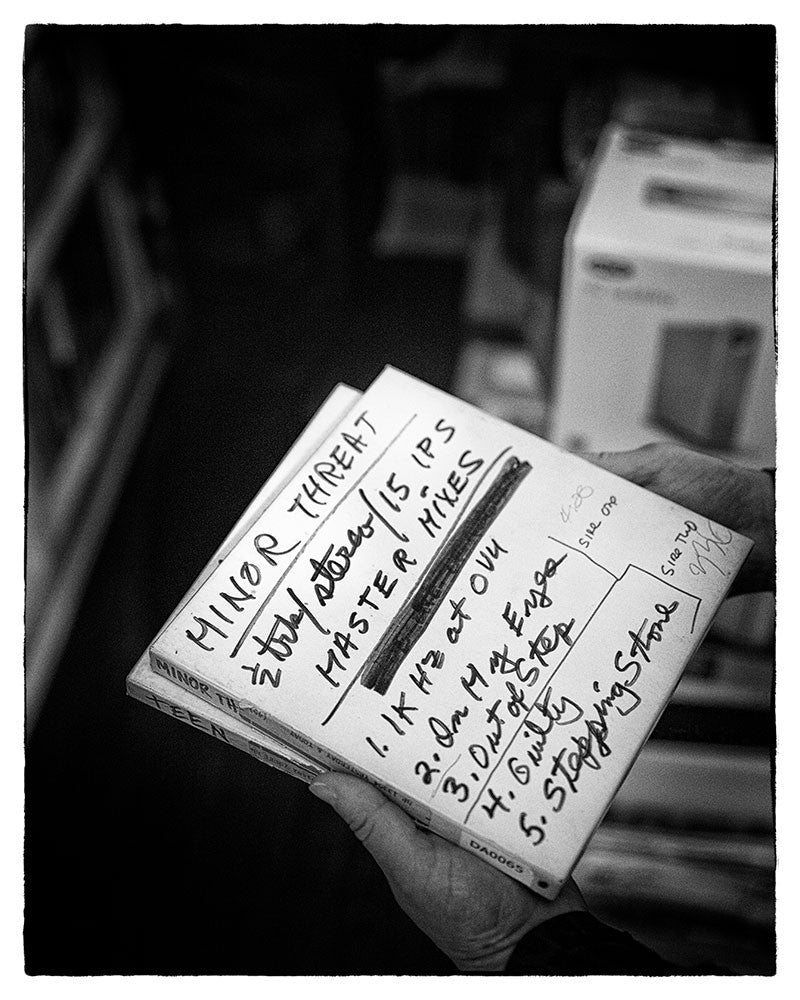 MINOR THREAT
½ trk/stereo/15 IPS
MASTER MIXES
1. 1K Hz at OVU
2. In My Eyes
3. Out of Step
4. Guilty
5. Stepping Stone
SIDE ONE
SIDE TWO
MINOR TH
TEEN
DA0065